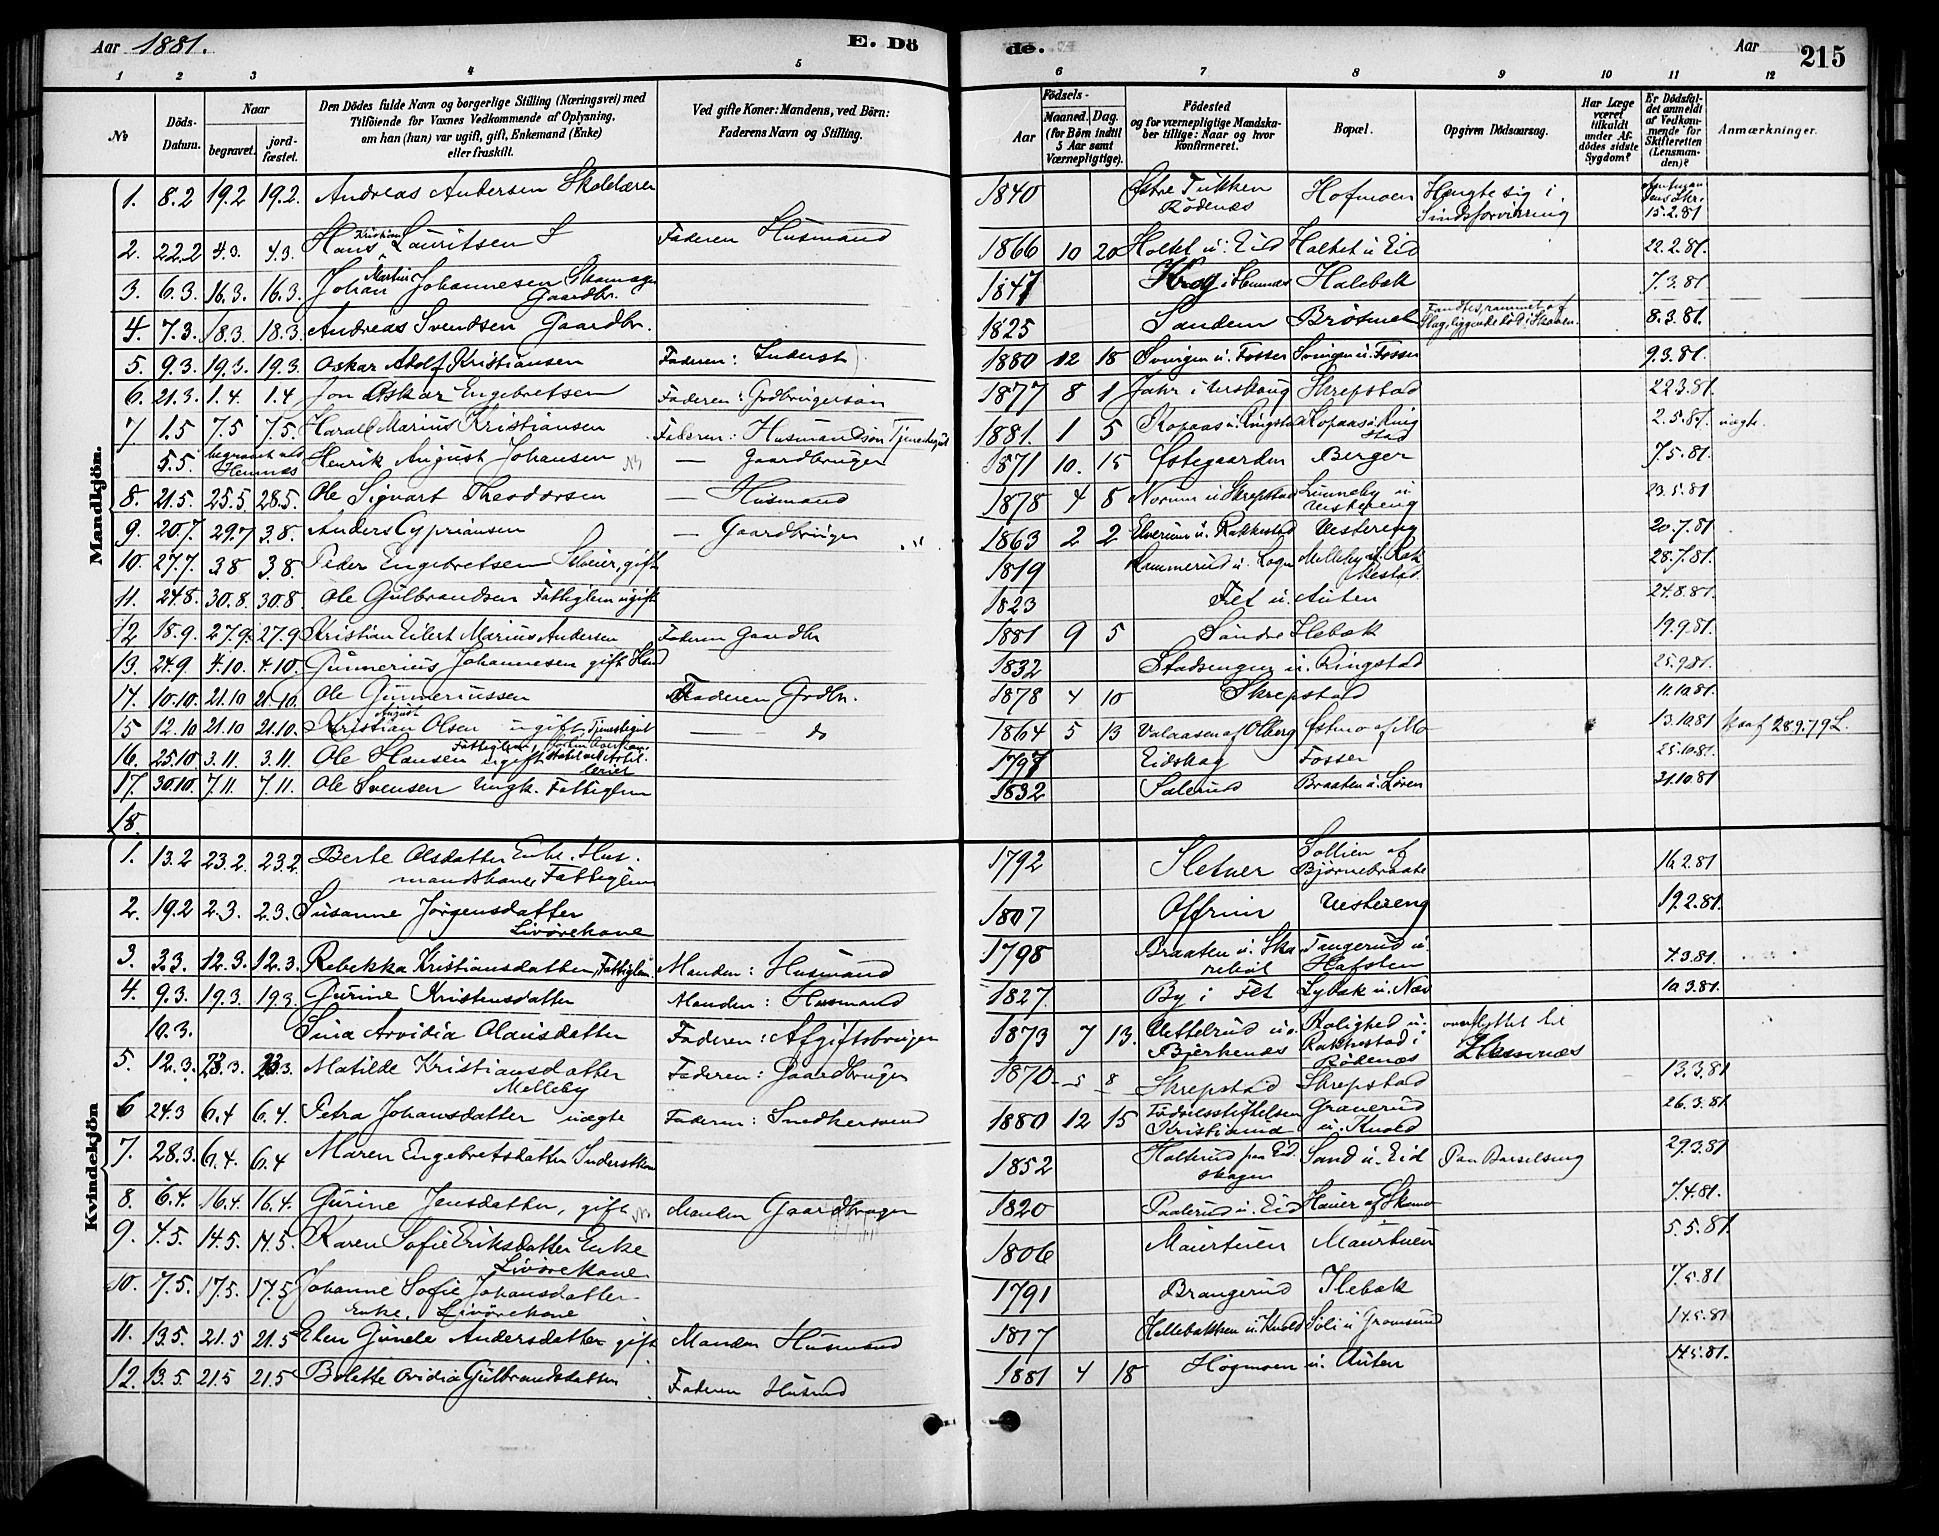 Aar 1881. E. Dö de. Aar 215
1 2 3 4 5 6 7 8 9 10 11 12
No
Döds-Datum.
Naar
begravet.
jordfæstet.
Den Dödes fulde Navn og borgerlige Stilling (Næringsvei) med
Tilföiende for Voxnes Vedkommende af Oplysning,
om han (hun) var ugift, gift, Enkemand (Enke)
eller fraskilt.
Ved gifte Koner: Mandens, ved Börn:
Faderens Navn og Stilling.
Födsels-
Aar
Maaned. Dag.
(for Börn indtil
5 Aar samt
Værnepligtige).
Födested
og for værnepligtige Mandskaber tillige: Naar og hvor
konfirmeret.
Bopæl.
Opgiven Dödsaarsag.
Har Læge
været
tilkaldt
under Afdödes sidste
Sygdom?
Er Dödsfaldet anmeldt
af Vedkommende for
Skifteretten
(Lensmanden)?
Anmærkninger.
Mandkjön.
1. 8.2 19.2 19.2. Andreas Andersen Skolelærer 1840 Østre Tukken Rödenæs Hofmoen Hængte sig i Sindsforvirring 15.2.81
2. 22.2 4.3. 4.3. Hans Kristian Lauritsen Faderen Husmand 1866 10 20 Holtet u: Eid Holtet u Eid 22.2.81.
3. 6.3. 16.3. 16.3. Johan Martin Johannesen Skomager Gaardbr. 1847 Krog i Hemnæs Halebæk 7.3.81
4. 7.3. 18.3 18.3. Andreas Svendsen Gaardbr. 1825 Sandem Brösmet Fandtes, rammet af Slag, liggende död i Skoven 8.3.81.
5. 9.3. 19.3. 19.3. Oskar Adolf Kristiansen Faderen: Inderst 1880 12 18 Svingen u. Fosser Svingen u Fosser 9.3.81.
6. 21.3. 1.4. 1.4 Jon Oskar Engebretsen Faderen: Grdbrugersön 1877 8 1 Jahr i Urskoug Skrepstad 22.3.81.
7 1.5 7.5 7.5. Harald Marius Kristiansen Faderen: Husmandssön Tjenestegut 1881. 1 5 Kopaas u. Ringstad Kopaas u Ringstad 2.5.81. uægte.
5.5. begravet ved Hemnæs Henrik August Johansen — Gaardbruger 1871 10. 15 Østegaarden Berger 7.5.81.
8. 21.5. 25.5. 28.5. Ole Sigvart Theodorsen — Husmand 1878 4 8 Norum u Skrepstad Lunneby u Vestereng 23.5.81
9. 20.7. 29.7 3.8. Anders Cypriansen — Gaardbruger 1863 2 2 Elverum u. Rakkestad Vestereng 20.7.81.
10. 27.7. 3.8 3.8. Peder Engebretsen Selveier, gift 1819 Hammerud u. Melleby u. Rakkestad. 28.7.81.
11. 24.8. 30.8. 30.8. Ole Gulbrandsen Fattiglem ugift 1823 Fet u. Auten 24.8.81.
12 18.9. 27.9. 27.9 Kristian Eilert Marius Andersen Faderen Gaardbr 1881 9 5 Söndre Ilebæk 19.9.81.
13. 24.9. 4.10. 4.10. Gunnerius Johannesen gift 1832 Stadsengen u. Ringstad 25.9.81.
14. 10.10. 21.10 21.10. Ole Gunneriussen Faderen Grdbr. 1878 4 10 Skrepstad 11.10.81.
15 12.10 21.10 21.10. Kristian August Olsen ugift, Tjenestegut — do 1864 5 13 Valaasen af Olberg Østmo af Mo 13.10.81
16. 25.10. 3.11. 3.11. Ole Hansen Fattiglem, ugift 1797 Eidskog Fosser 25.10.81.
17. 30.10. 7.11. 7.11. Ole Svensen Ungk. Fattiglem 1832 Salerud Braaten u. Lören 31.10.81
18.
Kvindekjön
1. 13.2 23.2. 23.2. Berte Olsdatter Enke. Husmandskone Fattiglem 1792 Sletner Sollien af Björnebraate 16.2.81
2. 19.2 2.3. 2.3. Susanne Jörgensdatter Livörekone 1807 Offrim Vestereng 19.2.81.
3. 3.3. 12.3. 12.3. Rebekka Kristiansdatter, Fattiglem. Manden: Husmand 1798 Braaten u. Tangerud u. Hafsten 4.3.81.
4. 9.3. 19.3. 19.3. Gurine Kristensdatter Manden: Husmand 1827. By i Fet Lybæk u. Næs 10.3.81.
10.3. Sina Arvidia Olausdatter Faderen: Afgiftsbruger 1873 7 13. Vettelrud u. Bjerkenæs Rolighed u. Rakkestad i Rödenæs overflyttet til Hemnæs
5. 12.3. 23.3. 23.3. Matilde Kristiansdatter Melleby Faderen: Gaardbruger 1870 5 8 Skrepstad Skrepstad 13.3.81
6 24.3 6.4 6.4. Petra Johansdatter uægte Faderen: Snedkersvend 1880 12 15 Födselsstiftelsen Kristiania Granerud u. Knold 26.3.81.
7. 28.3. 6.4. 6.4 Maren Engebretsdatter Inderstkone 1852 Holterud paa Eidskogen Sand u. Eid Paa Barselseng 29.3.81
8. 6.4. 16.4. 16.4. Gurine Jensdatter, gift Manden Gaardbruger 1820 Paalerud u. Eid Haner af Skomo 7.4.81.
9. 4.5. 14.5. 14.5. Karen Sofie Eriksdatter Enke Livörekone 1806 Maurtuen Maurtuen 5.5.81.
10. 7.5. 17.5. 17.5 Johanne Sofie Johansdatter Enke. Livörekone 1791 Brangerud Ilebæk 7.5.81
11. 13.5. 21.5 21.5 Elen Gunele Andersdatter gift Manden Husmand 1817 Hellebækken u. Knold Soli u Gromsund 14.5.81
12. 13.5. 21.5 21.5 Bolette Ovidia Gulbrandsdatter Faderen Husmd 1881 4 18 Högmoen u. Auten 14.5.81.